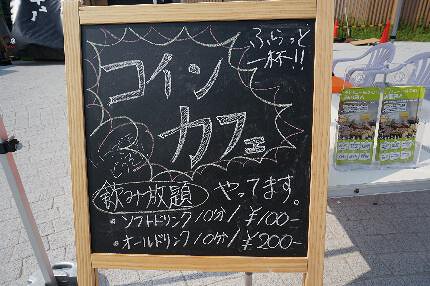 ふらっと
一杯!!
コイン
カフェ
飲み放題 やってます。
・ソフトドリンク 10分/¥100-
・オールドリンク 10分/¥200-